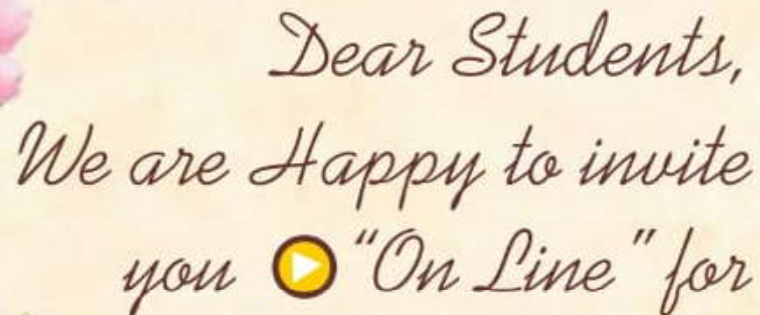 Dear Students,
We are Happy to invite
you "On Line" for